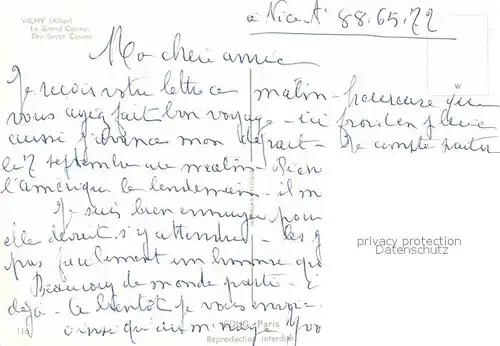 VICHY (Allier)
Le Grand Casino
The Great Casino
à Nice A! 88.65.72
Ma chère amie
Je reçois votre lettre ce matin - heureuse que
vous ayez fait bon voyage - ici froid en pleine
aussi j'avance mon départ - Je compte partir
le 7 septembre au matin -
l'amérique le lendemain - il m
Je suis bien ennuyée pour
elle devait s'y attendre - les g
pas facilement un homme qui
Beaucoup de monde parti -
déjà - à bientôt je vous
ainsi qu'au
privacy protection
AK-Ansichtskarten.de
Paris
Reproduction interdite
W